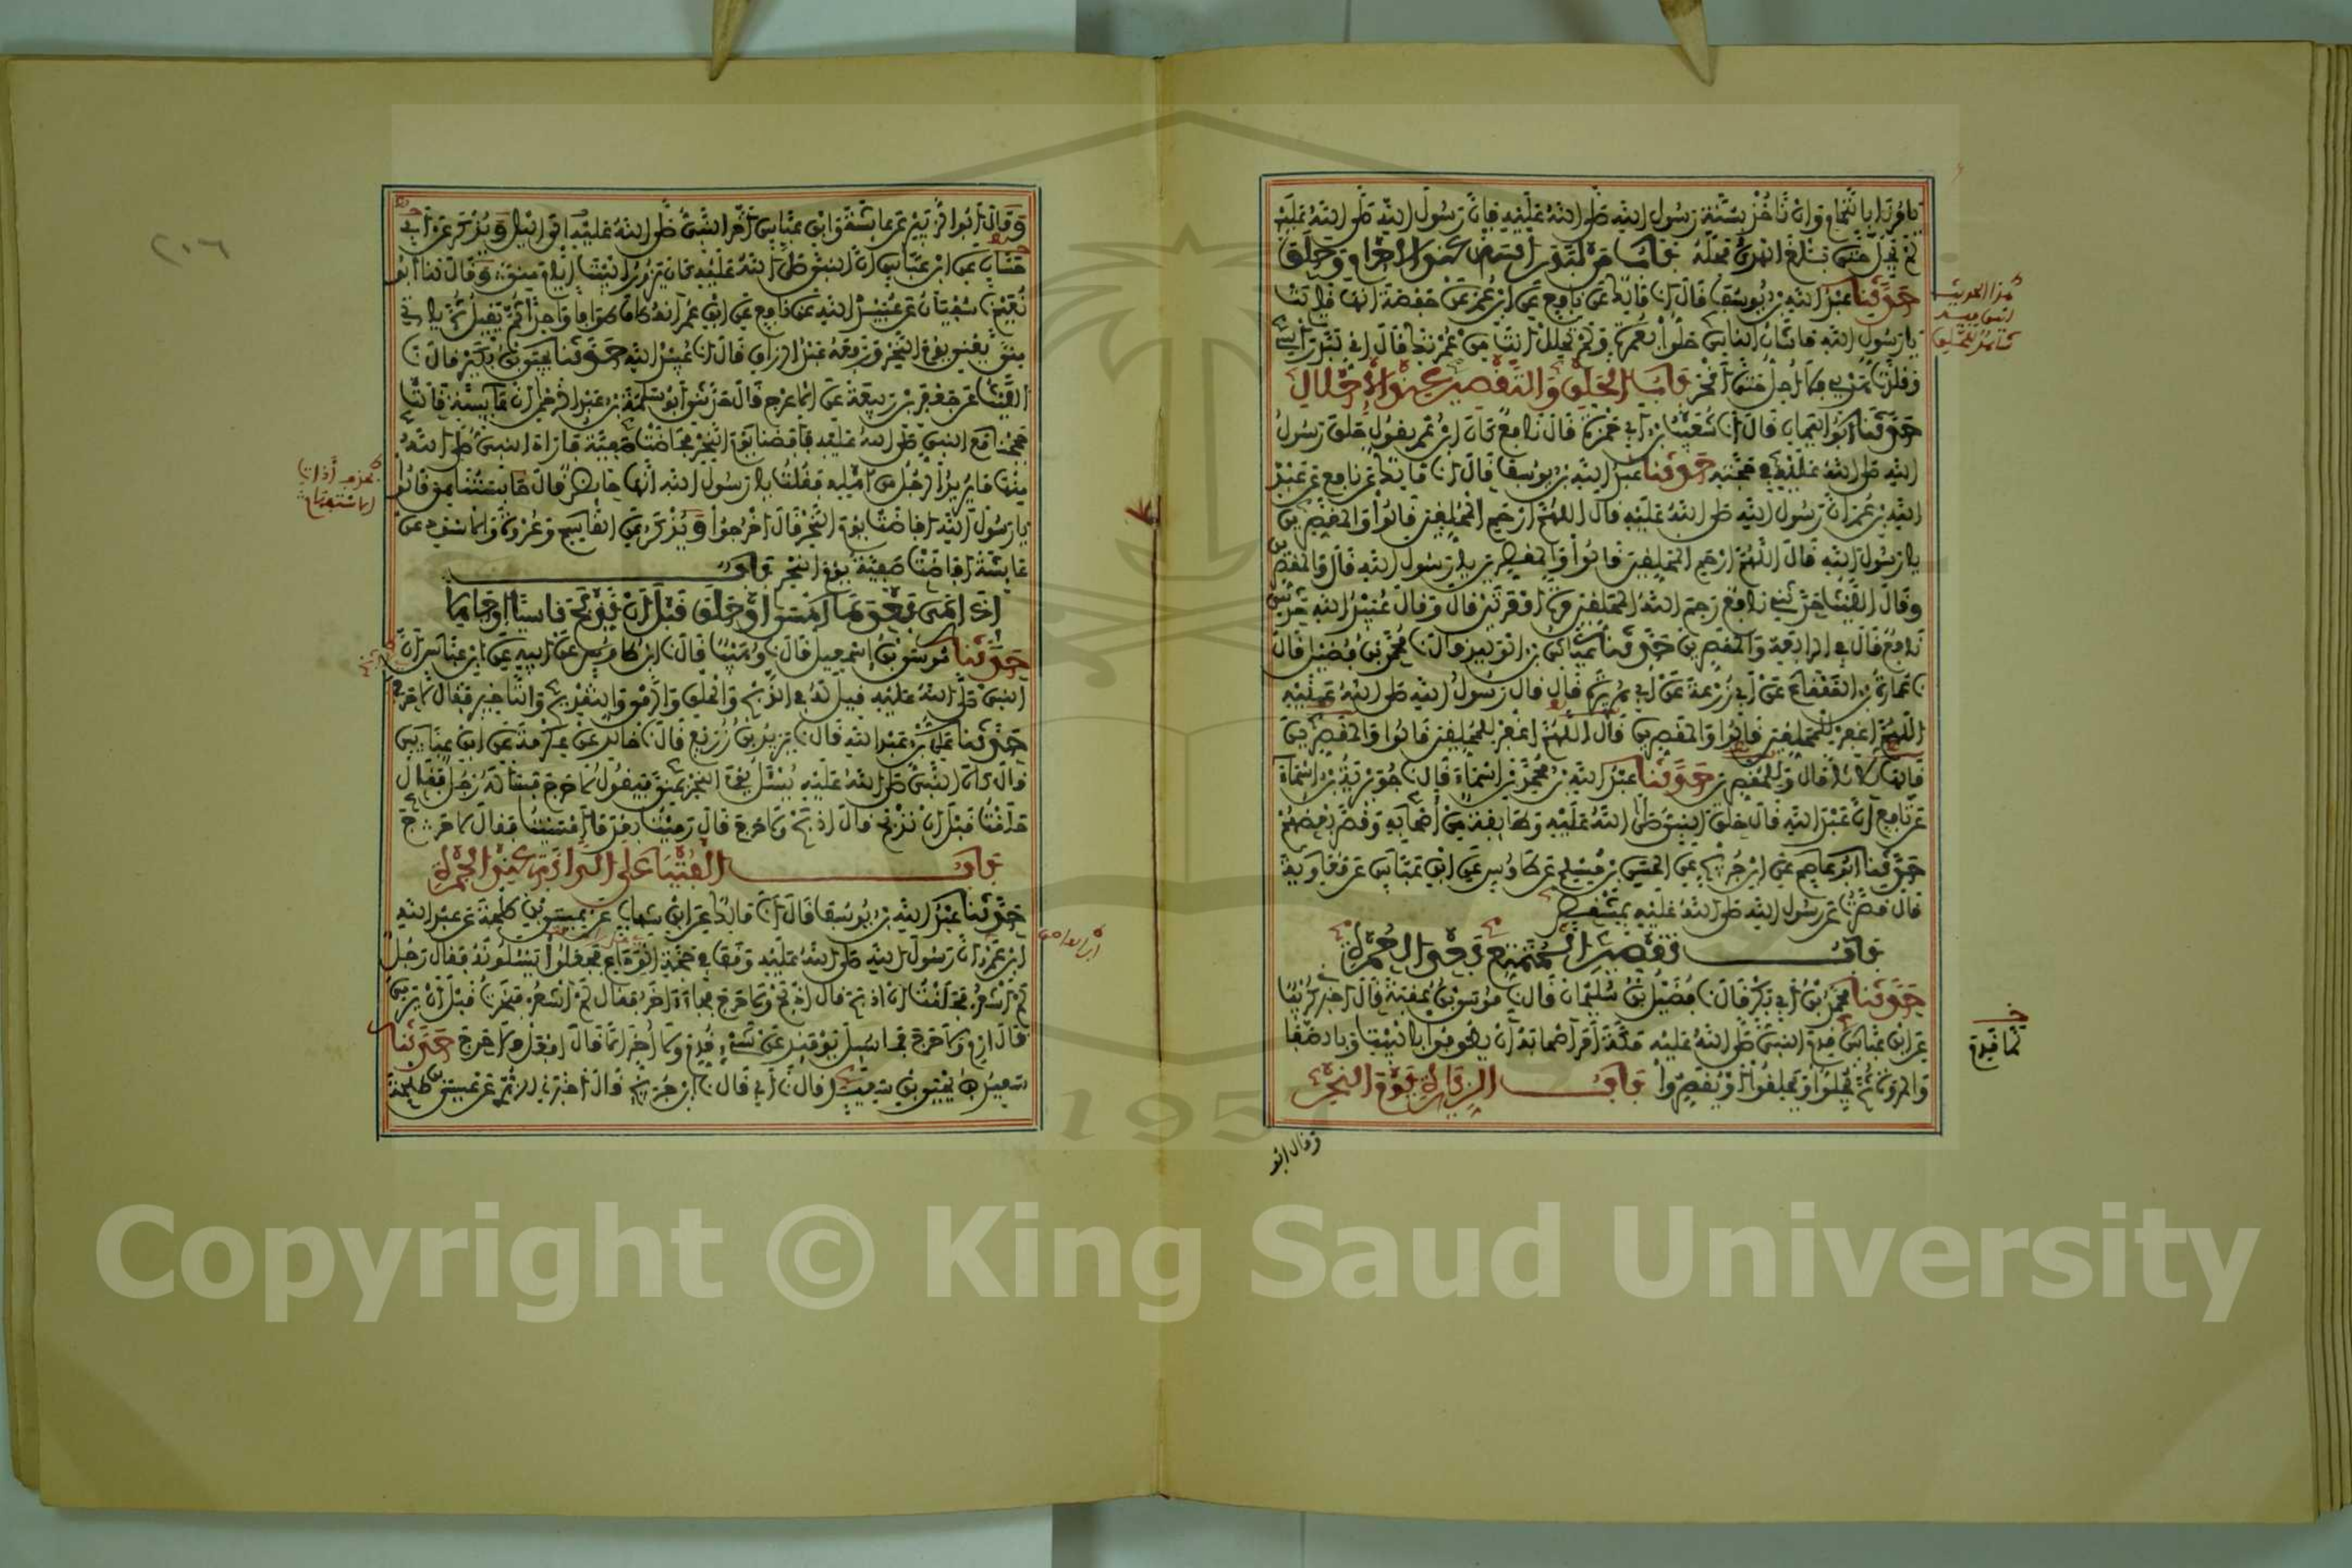 يامرنا بالتمام وان ناخذ بسنة رسول الله صلى الله عليه فان رسول الله صلى الله عليه
لم يحل حتى بلغ الهدي محله باب من لبد راسه عند الاحرام وحلق
حدثنا عبد الله بن يوسف قال انا مالك عن نافع عن ابن عمر عن حفصة انها قالت
يا رسول الله ما شان الناس حلوا بعمرة ولم تحلل انت من عمرتك قال اني لبدت راسي
وقلدت هديي فلا احل حتى انحر باب الحلق والتقصير عند الاحلال
حدثنا ابو اليمان قال انا شعيب بن ابي حمزة قال نافع كان ابن عمر يقول حلق رسول
الله صلى الله عليه في حجته حدثنا عبد الله بن يوسف قال انا مالك عن نافع عن عبد
الله بن عمر ان رسول الله صلى الله عليه قال اللهم ارحم المحلقين قالوا والمقصرين
يا رسول الله قال اللهم ارحم المحلقين قالوا والمقصرين يا رسول الله قال والمقصرين
وقال الليث حدثني نافع رحم الله المحلقين مرة او مرتين قال وقال عبيد الله حدثني
نافع قال في الرابعة والمقصرين حدثنا عياش بن الوليد قال نا محمد بن فضيل قال
نا عمارة بن القعقاع عن ابي زرعة عن ابي هريرة قال قال رسول الله صلى الله عليه
اللهم اغفر للمحلقين قالوا والمقصرين قال اللهم اغفر للمحلقين قالوا والمقصرين
قالها ثلاثا قال وللمقصرين حدثنا عبد الله بن محمد بن اسماء قال نا جويرية بن اسماء
عن نافع ان عبد الله قال حلق النبي صلى الله عليه وطائفة من اصحابه وقصر بعضهم
حدثنا ابو عاصم عن ابن جريج عن الحسن بن مسلم عن طاوس عن ابن عباس عن معاوية
قال قصرت عن رسول الله صلى الله عليه بمشقص
باب تقصير المتمتع بعد العمرة
حدثنا محمد بن ابي بكر قال نا فضيل بن سليمان قال نا موسى بن عقبة قال اخبرني كريب
عن ابن عباس قدم النبي صلى الله عليه مكة امر اصحابه ان يطوفوا بالبيت وبالصفا
والمروة ثم يحلوا ويحلقوا او يقصروا باب الزيارة يوم النحر
وقال ابو
هذا الحديث
لما قدم
وقال ابو الزبير عن عائشة وابن عباس اخر النبي صلى الله عليه الى الليل ويذكر عن ابي
حسان عن ابن عباس ان النبي صلى الله عليه كان يزور البيت ايام منى وقال لنا ابو
نعيم نا سفيان عن عبيد الله عن نافع عن ابن عمر انه طاف طوافا واحدا ثم يقيل ثم ياتي
منى يعني يوم النحر ورفعه عبد الرزاق قال انا عبيد الله حدثنا يحيى بن بكير قال نا
الليث عن جعفر بن ربيعة عن الاعرج قال حدثني ابو سلمة بن عبد الرحمن ان عائشة قالت
حججنا مع النبي صلى الله عليه فافضنا يوم النحر فحاضت صفية فاراد النبي صلى الله
منها ما يريد الرجل من اهله فقلت يا رسول الله انها حائض قال حابستنا هي قالوا
يا رسول الله افاضت يوم النحر قال اخرجوا ويذكر عن القاسم وعروة والاسود عن
عائشة افاضت صفية يوم النحر باب
اذا رمى بعد ما امسى او حلق قبل ان يذبح ناسيا او جاهلا
حدثنا موسى بن اسمعيل قال نا وهيب قال نا ابن طاوس عن ابيه عن ابن عباس ان
النبي صلى الله عليه قيل له في الذبح والحلق والرمي والتقديم والتاخير فقال لا حرج
حدثنا علي بن عبد الله قال نا يزيد بن زريع قال نا خالد عن عكرمة عن ابن عباس
قال كان النبي صلى الله عليه يسئل يوم النحر بمنى فيقول لا حرج فساله رجل فقال
حلقت قبل ان اذبح قال اذبح ولا حرج قال رميت بعد ما امسيت فقال لا حرج
باب الفتيا على الدابة عند الجمرة
حدثنا عبد الله بن يوسف قال انا مالك عن ابن شهاب عن عيسى بن طلحة عن عبد الله
ابن عمرو ان رسول الله صلى الله عليه وقف في حجة الوداع فجعلوا يسئلونه فقال رجل
لم اشعر فحلقت ان اذبح قال اذبح ولا حرج فجاء اخر فقال لم اشعر فنحرت قبل ان ارمي
قال ارم ولا حرج فما سئل يومئذ عن شيء قدم ولا اخر الا قال افعل ولا حرج حدثنا
سعيد بن يحيى بن سعيد قال نا ابي قال نا ابن جريج قال اخبرني الزهري عن عيسى بن طلحة
٢٠٦
ابن العاصي
Copyright © King Saud University
1957